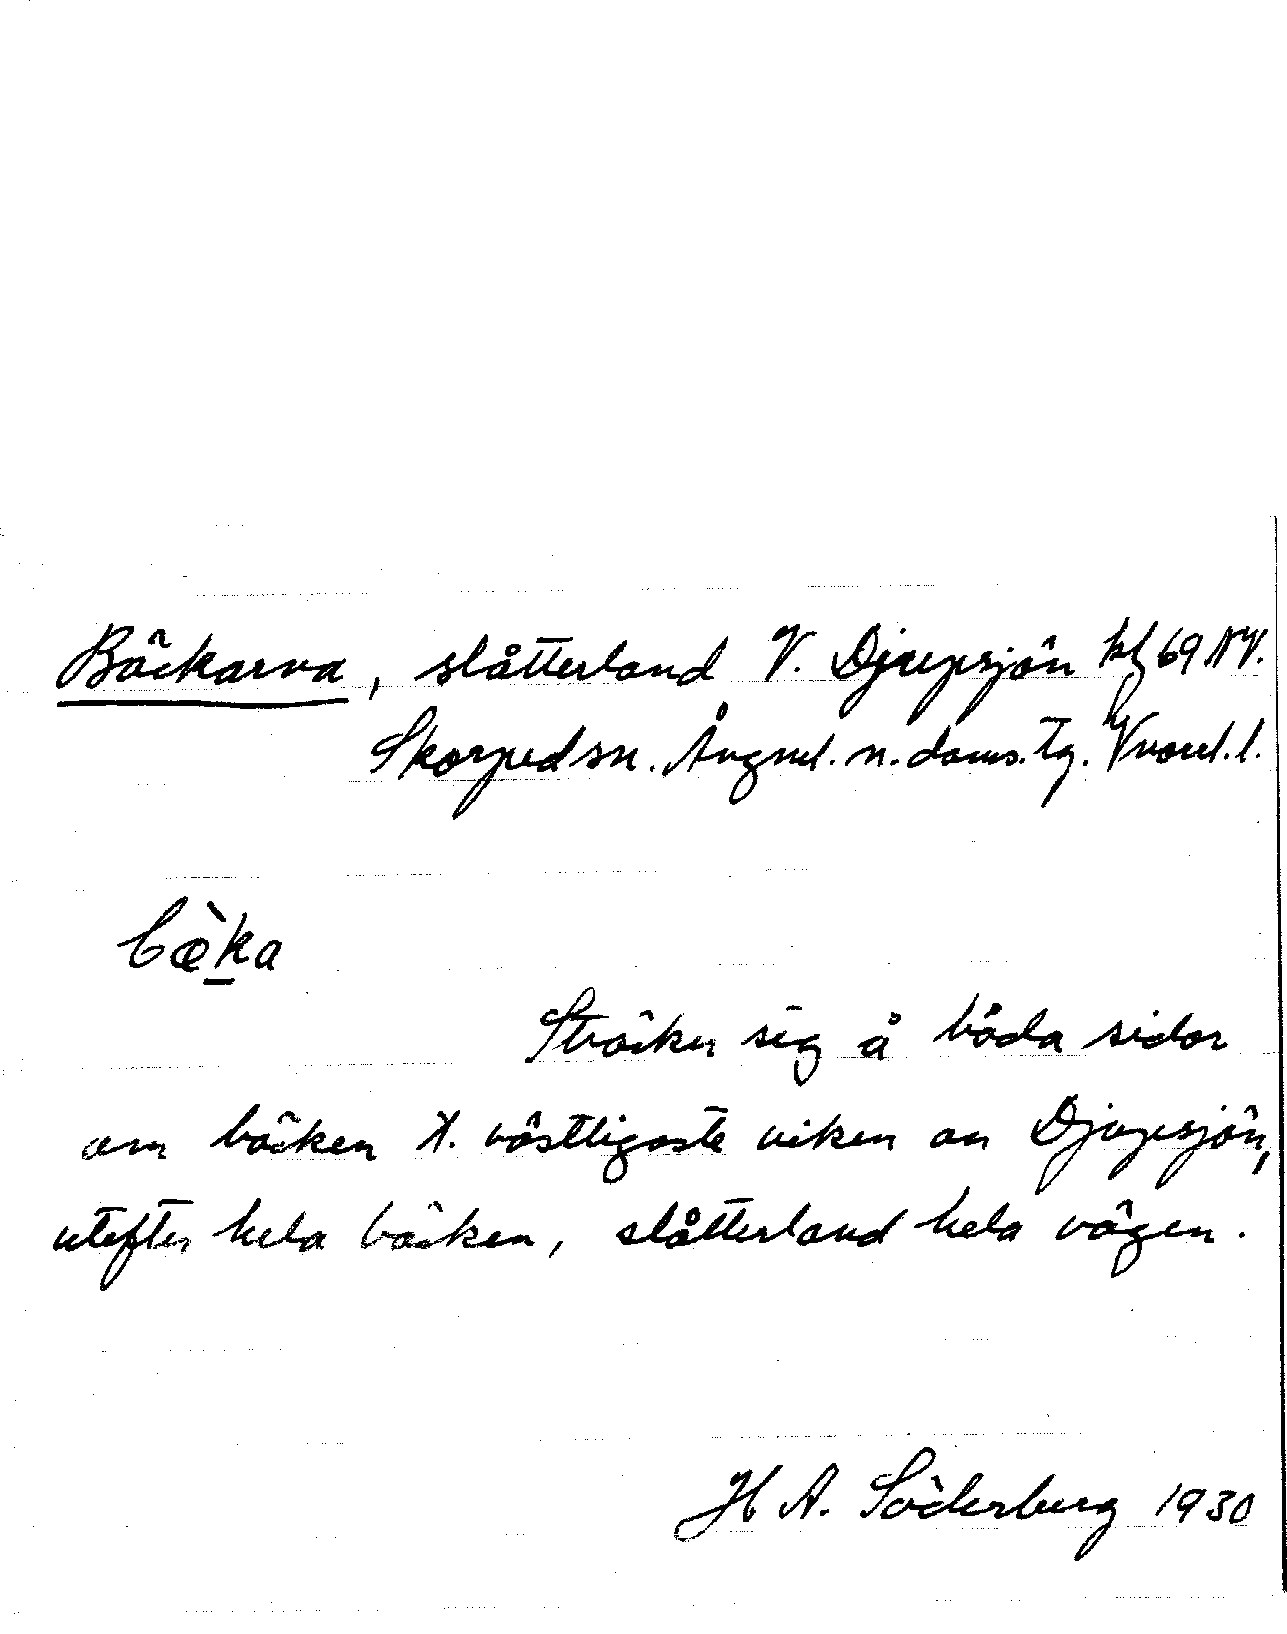 Bäckarna, slåtterland V. Djupsjön kbl 69 NV.
Skorped sn. Ångml. n. doms. tg. Vnorrl. l.
bæ̀ka
Sträcker sig å båda sidor
om bäcken t. västligaste viken av Djupsjön,
utefter hela bäcken, slåtterland hela vägen.
H A. Söderberg 1930